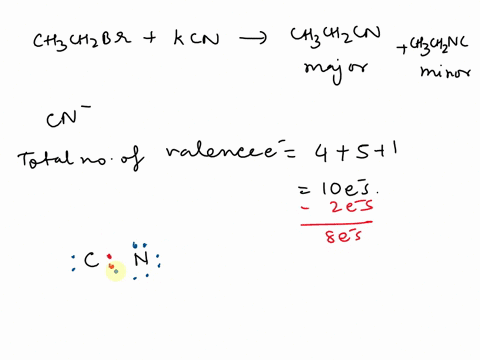 CH3CH2Br + KCN → CH3CH2CN + CH3CH2NC
major minor
CN⁻
Total no. of valence e⁻ = 4 + 5 + 1
= 10e⁻s.
- 2e⁻s
8e⁻s
: C : N :